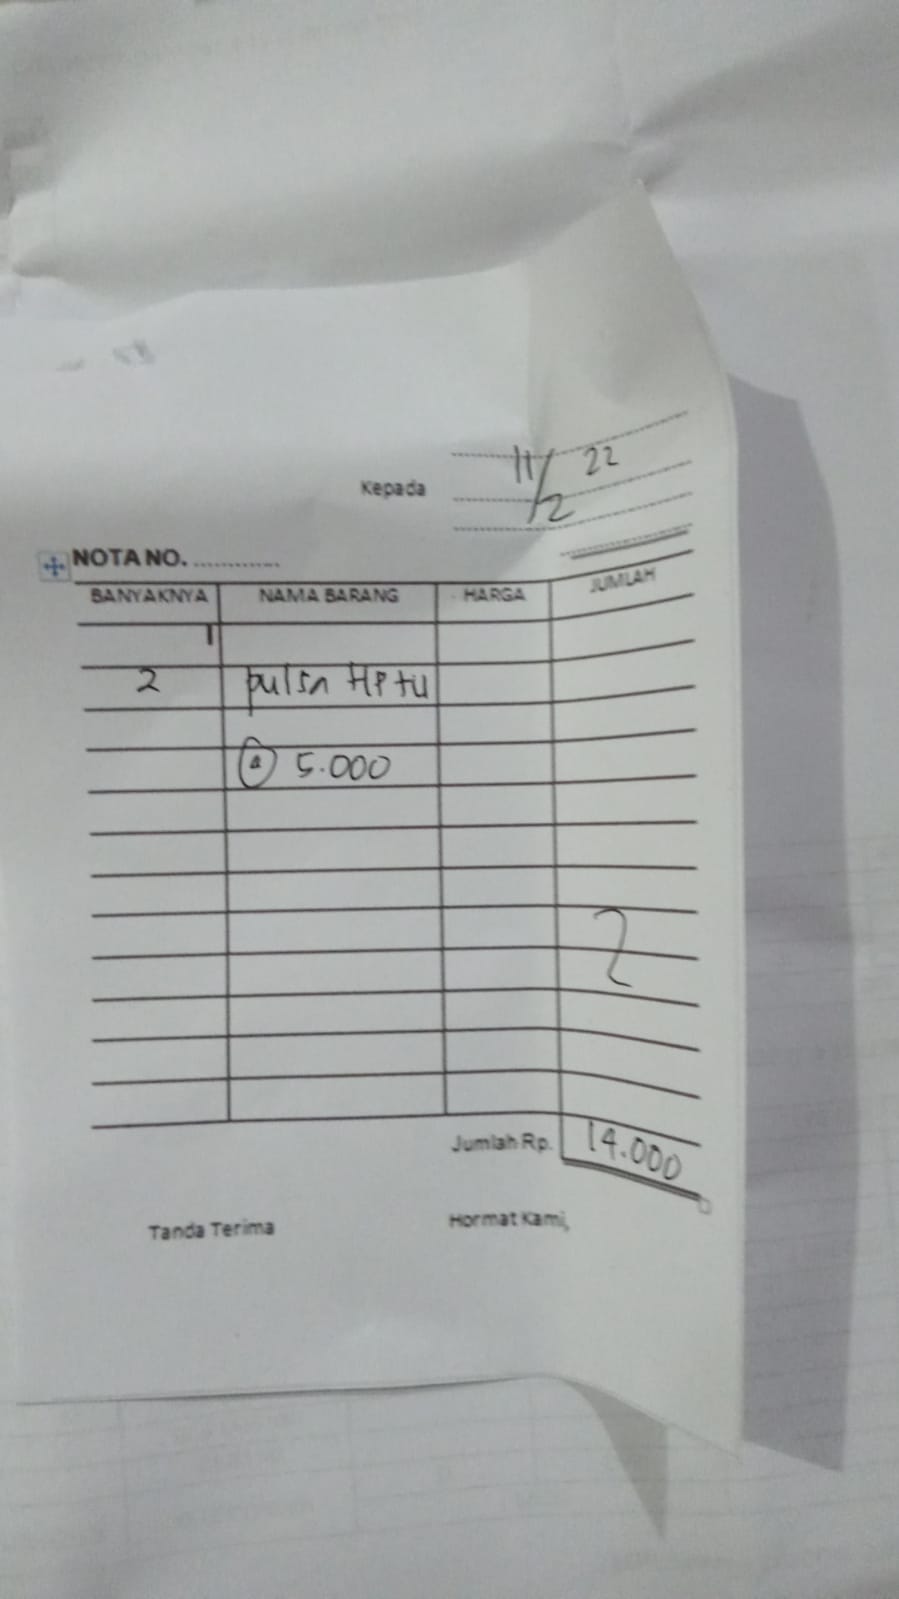 11/2 22
Kepada
NOTA NO. ............
BANYAKNYA NAMA BARANG HARGA JUMLAH
1
2 pulsa HP tu
@ 5.000
Jumlah Rp. 14.000
Tanda Terima Hormat Kami,